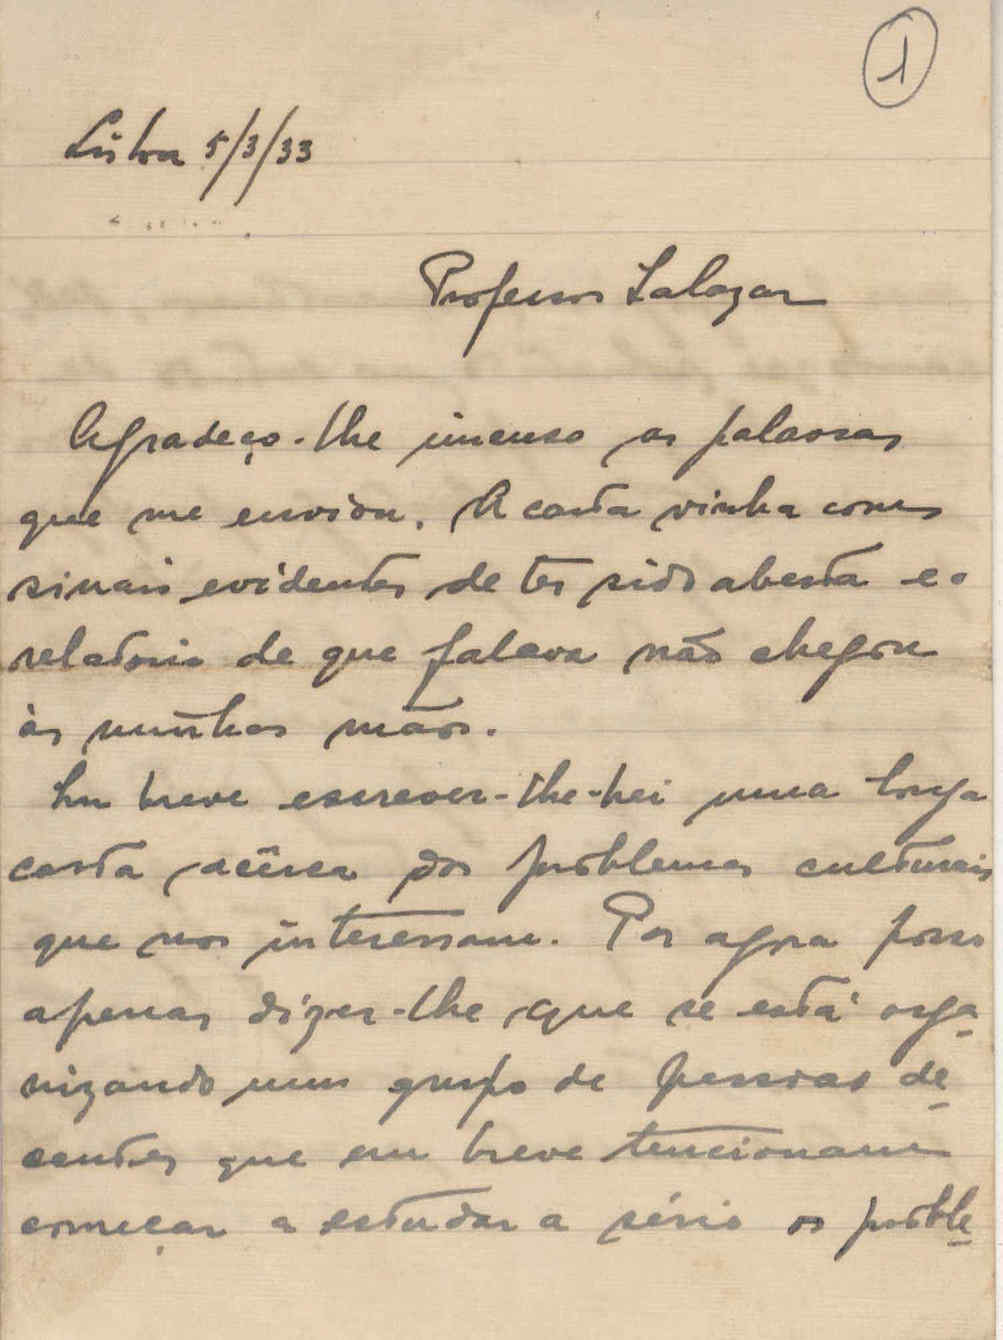 1
Lisboa 5/3/33
Professor Salazar
Agradeço-lhe imenso as palavras
que me enviou. A carta vinha com
sinais evidentes de ter sido aberta e o
relatorio de que falava não chegou
às minhas mãos.
Em breve escrever-lhe-hei uma longa
carta acêrca dos problemas culturais
que nos interessam. Por agora posso
apenas dizer-lhe que se está orga-
nizando um grupo de pessoas de-
centes que em breve tencionam
começar a estudar a sério os proble-